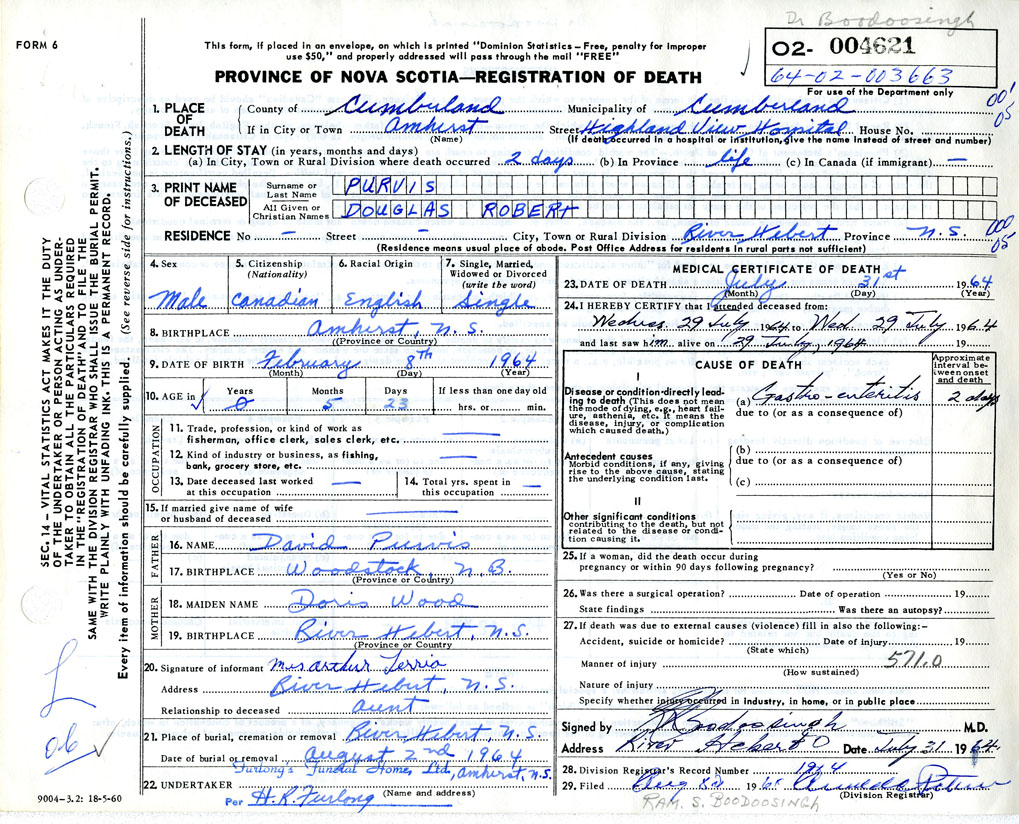 Dr Boodoosingh
FORM 6
This form, if placed in an envelope, on which is printed "Dominion Statistics – Free, penalty for improper
use $50," and properly addressed will pass through the mail "FREE"
PROVINCE OF NOVA SCOTIA—REGISTRATION OF DEATH
O2- 004621
64-02-003663
For use of the Department only
001
05
1. PLACE OF DEATH County of Cumberland Municipality of Cumberland
If in City or Town Amherst Street Highland View Hospital House No.
(Name) (If death occurred in a hospital or institution, give the name instead of street and number)
2. LENGTH OF STAY (in years, months and days)
(a) In City, Town or Rural Division where death occurred 2 days (b) In Province life (c) In Canada (if immigrant) —
3. PRINT NAME OF DECEASED Surname or Last Name PURVIS
All Given or Christian Names DOUGLAS ROBERT
000
05
RESIDENCE No — Street — City, Town or Rural Division River Hebert Province N.S.
(Residence means usual place of abode. Post Office Address for residents in rural parts not sufficient)
4. Sex Male
5. Citizenship (Nationality) Canadian
6. Racial Origin English
7. Single, Married, Widowed or Divorced (write the word) Single
8. BIRTHPLACE Amherst, N.S.
(Province or Country)
9. DATE OF BIRTH February 8th 1964
(Month) (Day) (Year)
10. AGE in Years 0 Months 5 Days 23 If less than one day old hrs. or min.
OCCUPATION
11. Trade, profession, or kind of work as
fisherman, office clerk, sales clerk, etc. —
12. Kind of industry or business, as fishing,
bank, grocery store, etc. —
13. Date deceased last worked
at this occupation —
14. Total yrs. spent in
this occupation —
15. If married give name of wife
or husband of deceased —
FATHER
16. NAME David Purvis
17. BIRTHPLACE Woodstock, N.B.
(Province or Country)
MOTHER
18. MAIDEN NAME Doris Wood
19. BIRTHPLACE River Hebert, N.S.
(Province or Country)
20. Signature of informant Mrs Arthur Terrio
Address River Hebert, N.S.
Relationship to deceased aunt
21. Place of burial, cremation or removal River Hebert N.S.
Date of burial or removal August 2nd 1964
22. UNDERTAKER Furlong's Funeral Home, Ltd, Amherst, N.S.
(Name and address)
Per H.R. Furlong
9004–3.2: 18-5-60
MEDICAL CERTIFICATE OF DEATH
23. DATE OF DEATH July 31st 1964
(Month) (Day) (Year)
24. I HEREBY CERTIFY that I attended deceased from:
29 July 1964 to Wed. 29 July 1964
and last saw him alive on 29 July, 1964 19
CAUSE OF DEATH
Approximate interval between onset and death
I
Disease or condition directly leading to death (This does not mean the mode of dying, e.g., heart failure, asthenia, etc. It means the disease, injury, or complication which caused death.)
(a) Gastro-enteritis 2 days
due to (or as a consequence of)
Antecedent causes
Morbid conditions, if any, giving rise to the above cause, stating the underlying condition last.
(b)
due to (or as a consequence of)
(c)
II
Other significant conditions
contributing to the death, but not related to the disease or condition causing it.
25. If a woman, did the death occur during
pregnancy or within 90 days following pregnancy?
(Yes or No)
26. Was there a surgical operation? Date of operation 19
State findings Was there an autopsy?
27. If death was due to external causes (violence) fill in also the following:–
Accident, suicide or homicide? Date of injury 19
(State which)
Manner of injury 571.0
(How sustained)
Nature of injury
Specify whether injury occurred in Industry, in home, or in public place
Signed by Boodoosingh M.D.
Address River Hebert Date July 31 1964.
28. Division Registrar's Record Number
29. Filed 19
(Division Registrar)
RAM. S. BOODOOSINGH
SEC. 14 – VITAL STATISTICS ACT MAKES IT THE DUTY
OF THE UNDERTAKER OR PERSON ACTING AS UNDER-
TAKER TO OBTAIN ALL THE PARTICULARS REQUIRED
IN THE "REGISTRATION OF DEATH" AND TO FILE THE
SAME WITH THE DIVISION REGISTRAR WHO SHALL ISSUE THE BURIAL PERMIT.
WRITE PLAINLY WITH UNFADING INK. THIS IS A PERMANENT RECORD.
Every item of information should be carefully supplied. (See reverse side for instructions.)